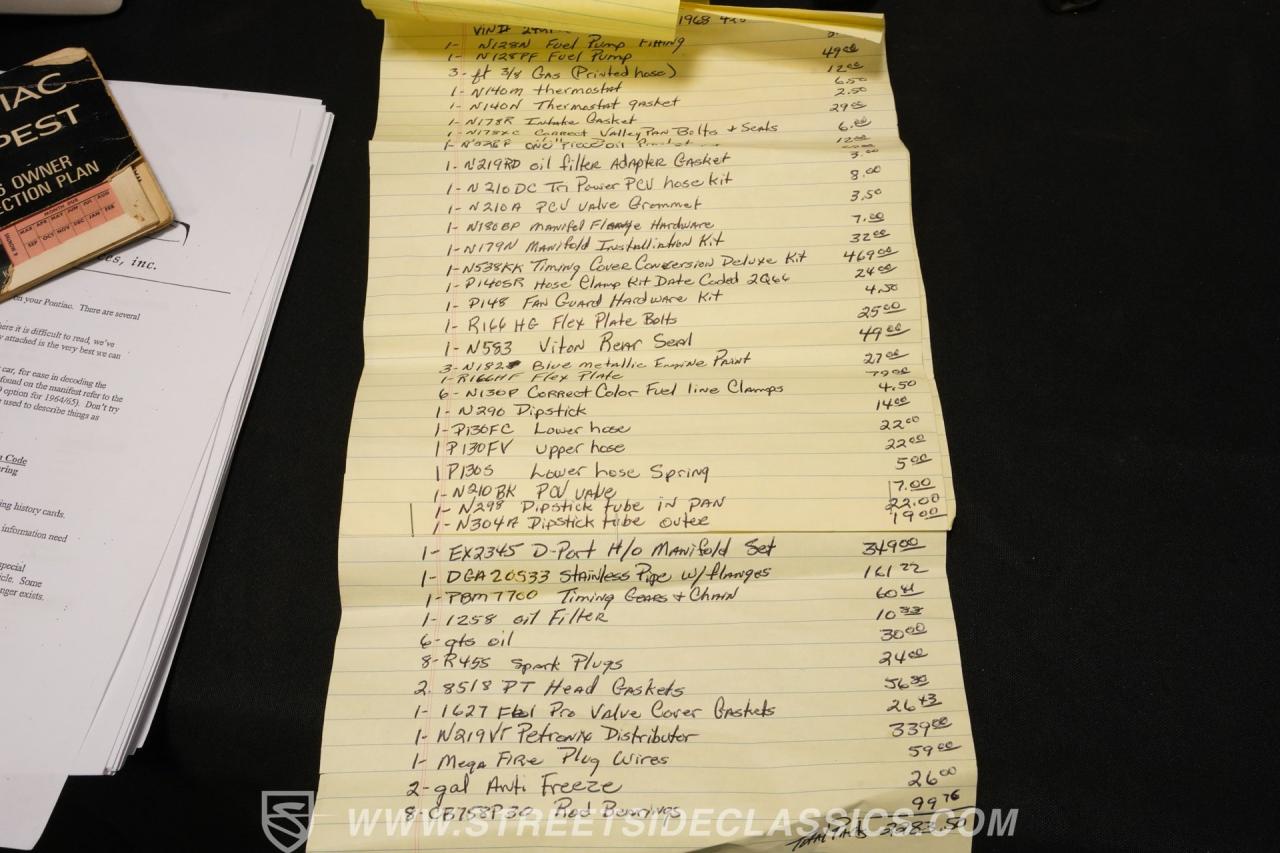 IAC
PEST
OWNER
ECTION PLAN
MONTH DUE
MAR APR MAY JUN JUL AUG
SEP OCT NOV DEC JAN FEB
es, inc.
en your Pontiac. There are several
ere it is difficult to read, we've
attached is the very best we can
car, for ease in decoding the
found on the manifest refer to the
option for 1964/65). Don't try
used to describe things as
Code
ring
ing history cards.
information need
special
icle. Some
nger exists.
1968
VIN#
1- N128N Fuel Pump Fitting
1- N128PF Fuel Pump 49.00
3- ft 3/8 Gas (Printed hose) 12.00
1- N140M thermostat 6.50
1- N140N Thermostat gasket 2.50
1- N178R Intake Gasket 29.00
1- N178XC Correct Valley Pan Bolts + Seals 6.00
12.00
1- N219RD oil filter Adapter Gasket 3.00
1- N210DC Tri Power PCV hose kit 8.00
1- N210A PCV valve Grommet 3.50
1- N180BP Manifol Flange Hardware 7.00
1- N179N Manifold Installiation Kit 32.00
1- N538KK Timing Cover Conversion Deluxe Kit 469.00
1- P140SR Hose Clamp Kit Date Coded 2Q66 24.00
1- P148 FAN Guard Hardware Kit 4.50
1- R166HG Flex Plate Bolts 25.00
1- N583 Viton Rear Seal 49.00
3- N182 Blue metallic Engine Paint 27.00
1- R166HF Flex Plate 79.00
6- N130P Correct Color Fuel line Clamps 4.50
1- N290 Dipstick 14.00
1- P130FC Lower hose 22.00
1 P130FV upper hose 22.00
1 P130S Lower hose Spring 5.00
1- N210BK PCV valve 7.00
1- N298 Dipstick tube in PAN 22.00
1- N304A Dipstick tube outer 19.00
1- EX2345 D-Port H/o Manifold Set 349.00
1- DGA20533 Stainless Pipe w/flanges 161.22
1- PBM7700 Timing Gears + Chain 60.41
1- 1258 oil Filter 10.33
6- qts oil 30.00
8- R45S Spark Plugs 24.00
2. 8518 PT Head Gaskets 56.30
1- 1627 Fel Pro Valve Cover Gaskets 26.43
1- N219VT Petronix Distributor 339.00
1- Mega Fire Plug Wires 59.00
2- gal Anti Freeze 26.00
8- CB758P30 Rod Bearings 99.76
Total Parts 2283.50
WWW.STREETSIDECLASSICS.COM